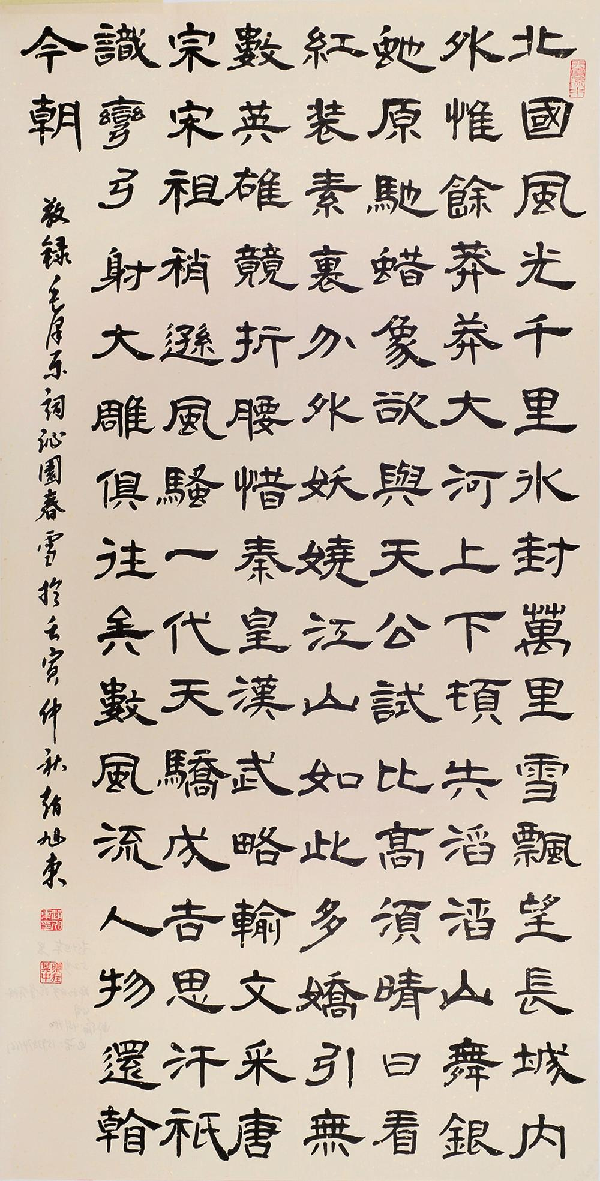 北國風光千里氷封萬里雪飄望長城内
外惟餘莽莽大河上下頓失滔滔山舞銀
虵原馳蜡象欲與天公試比高須晴日看
紅装素裏分外妖嬈江山如此多嬌引無
數英雄競折腰惜秦皇漢武略輸文采唐
宗宋祖稍遜風騷一代天驕成吉思汗祇
識彎弓射大雕俱往矣數風流人物還看
今朝
敬録毛澤东詞沁園春雪於壬寅仲秋趙旭东